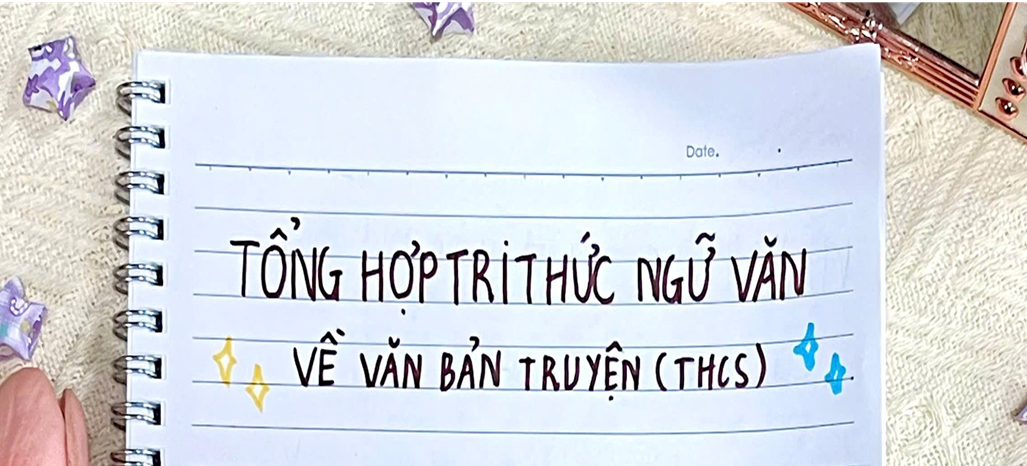 Date.
TỔNG HỢP TRI THỨC NGỮ VĂN
VỀ VĂN BẢN TRUYỆN (THCS)